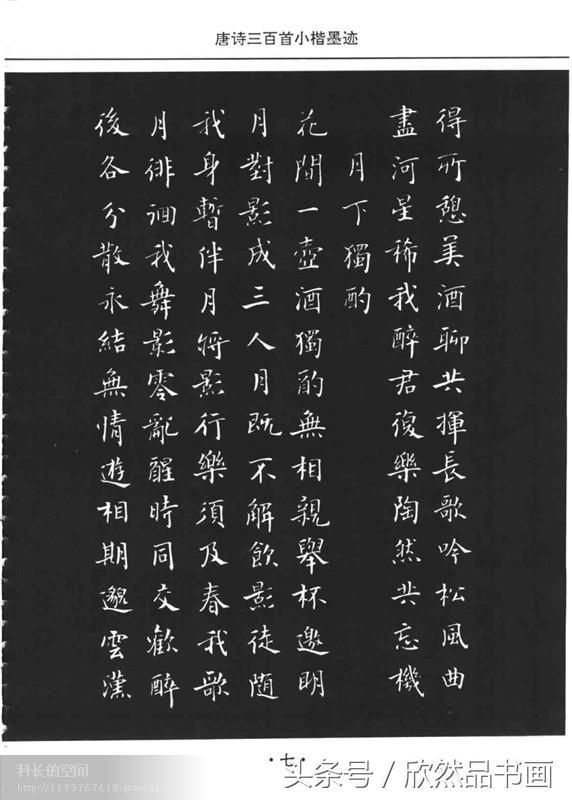 唐诗三百首小楷墨迹
得所憩美酒聊共揮長歌吟松風曲
盡河星稀我醉君復樂陶然共忘機
月下獨酌
花間一壺酒獨酌無相親舉杯邀明
月對影成三人月既不解飲影徒隨
我身暫伴月將影行樂須及春我歌
月徘徊我舞影零亂醒時同交歡醉
後各分散永結無情遊相期邈雲漢
·七·
科长的空间
头条号／欣然品书画